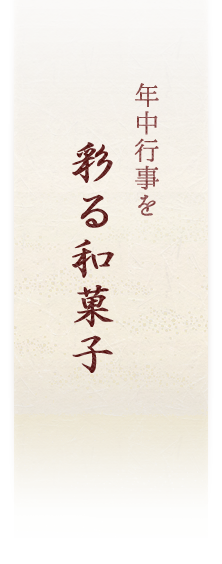 年中行事を
彩る和菓子